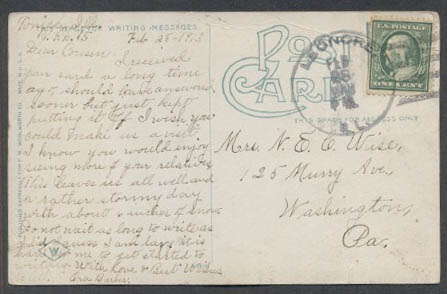 Ill.
THIS SPACE FOR WRITING MESSAGES.
Feb 25-1913
Dear Cousin I received
your card a long time
ago & should have answered
sooner but just kept
putting it off I wish you
could make us a visit.
I know you would enjoy
seeing more of your relatives
This leaves us all well and
a rather stormy day
with about 6 inches of snow
do not wait as long to write as
I am lazy it is
hard for me to get started to
writing. With Love & Best Wishes
POST
CARD
THIS SPACE FOR ADDRESS ONLY
FEB
25
ONE CENT
Mrs. N. E. C. Wise,
125 Murry Ave.,
Washington,
Pa.
W